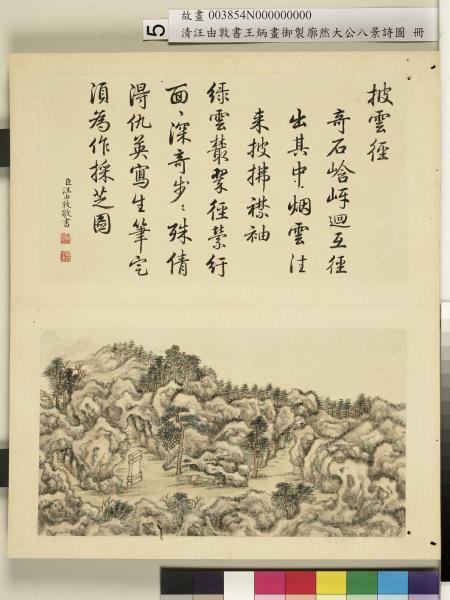 5
故畫 003854N000000000
清汪由敦書王炳畫御製廓然大公八景詩圖 冊
披雲徑
奇石峆岈迴互徑
出其中烟雲往
來披拂襟袖
綠雲叢翠徑縈紆
面〻深奇步〻殊倩
得仇英寫生筆定
須為作採芝圖
臣汪由敦敬書